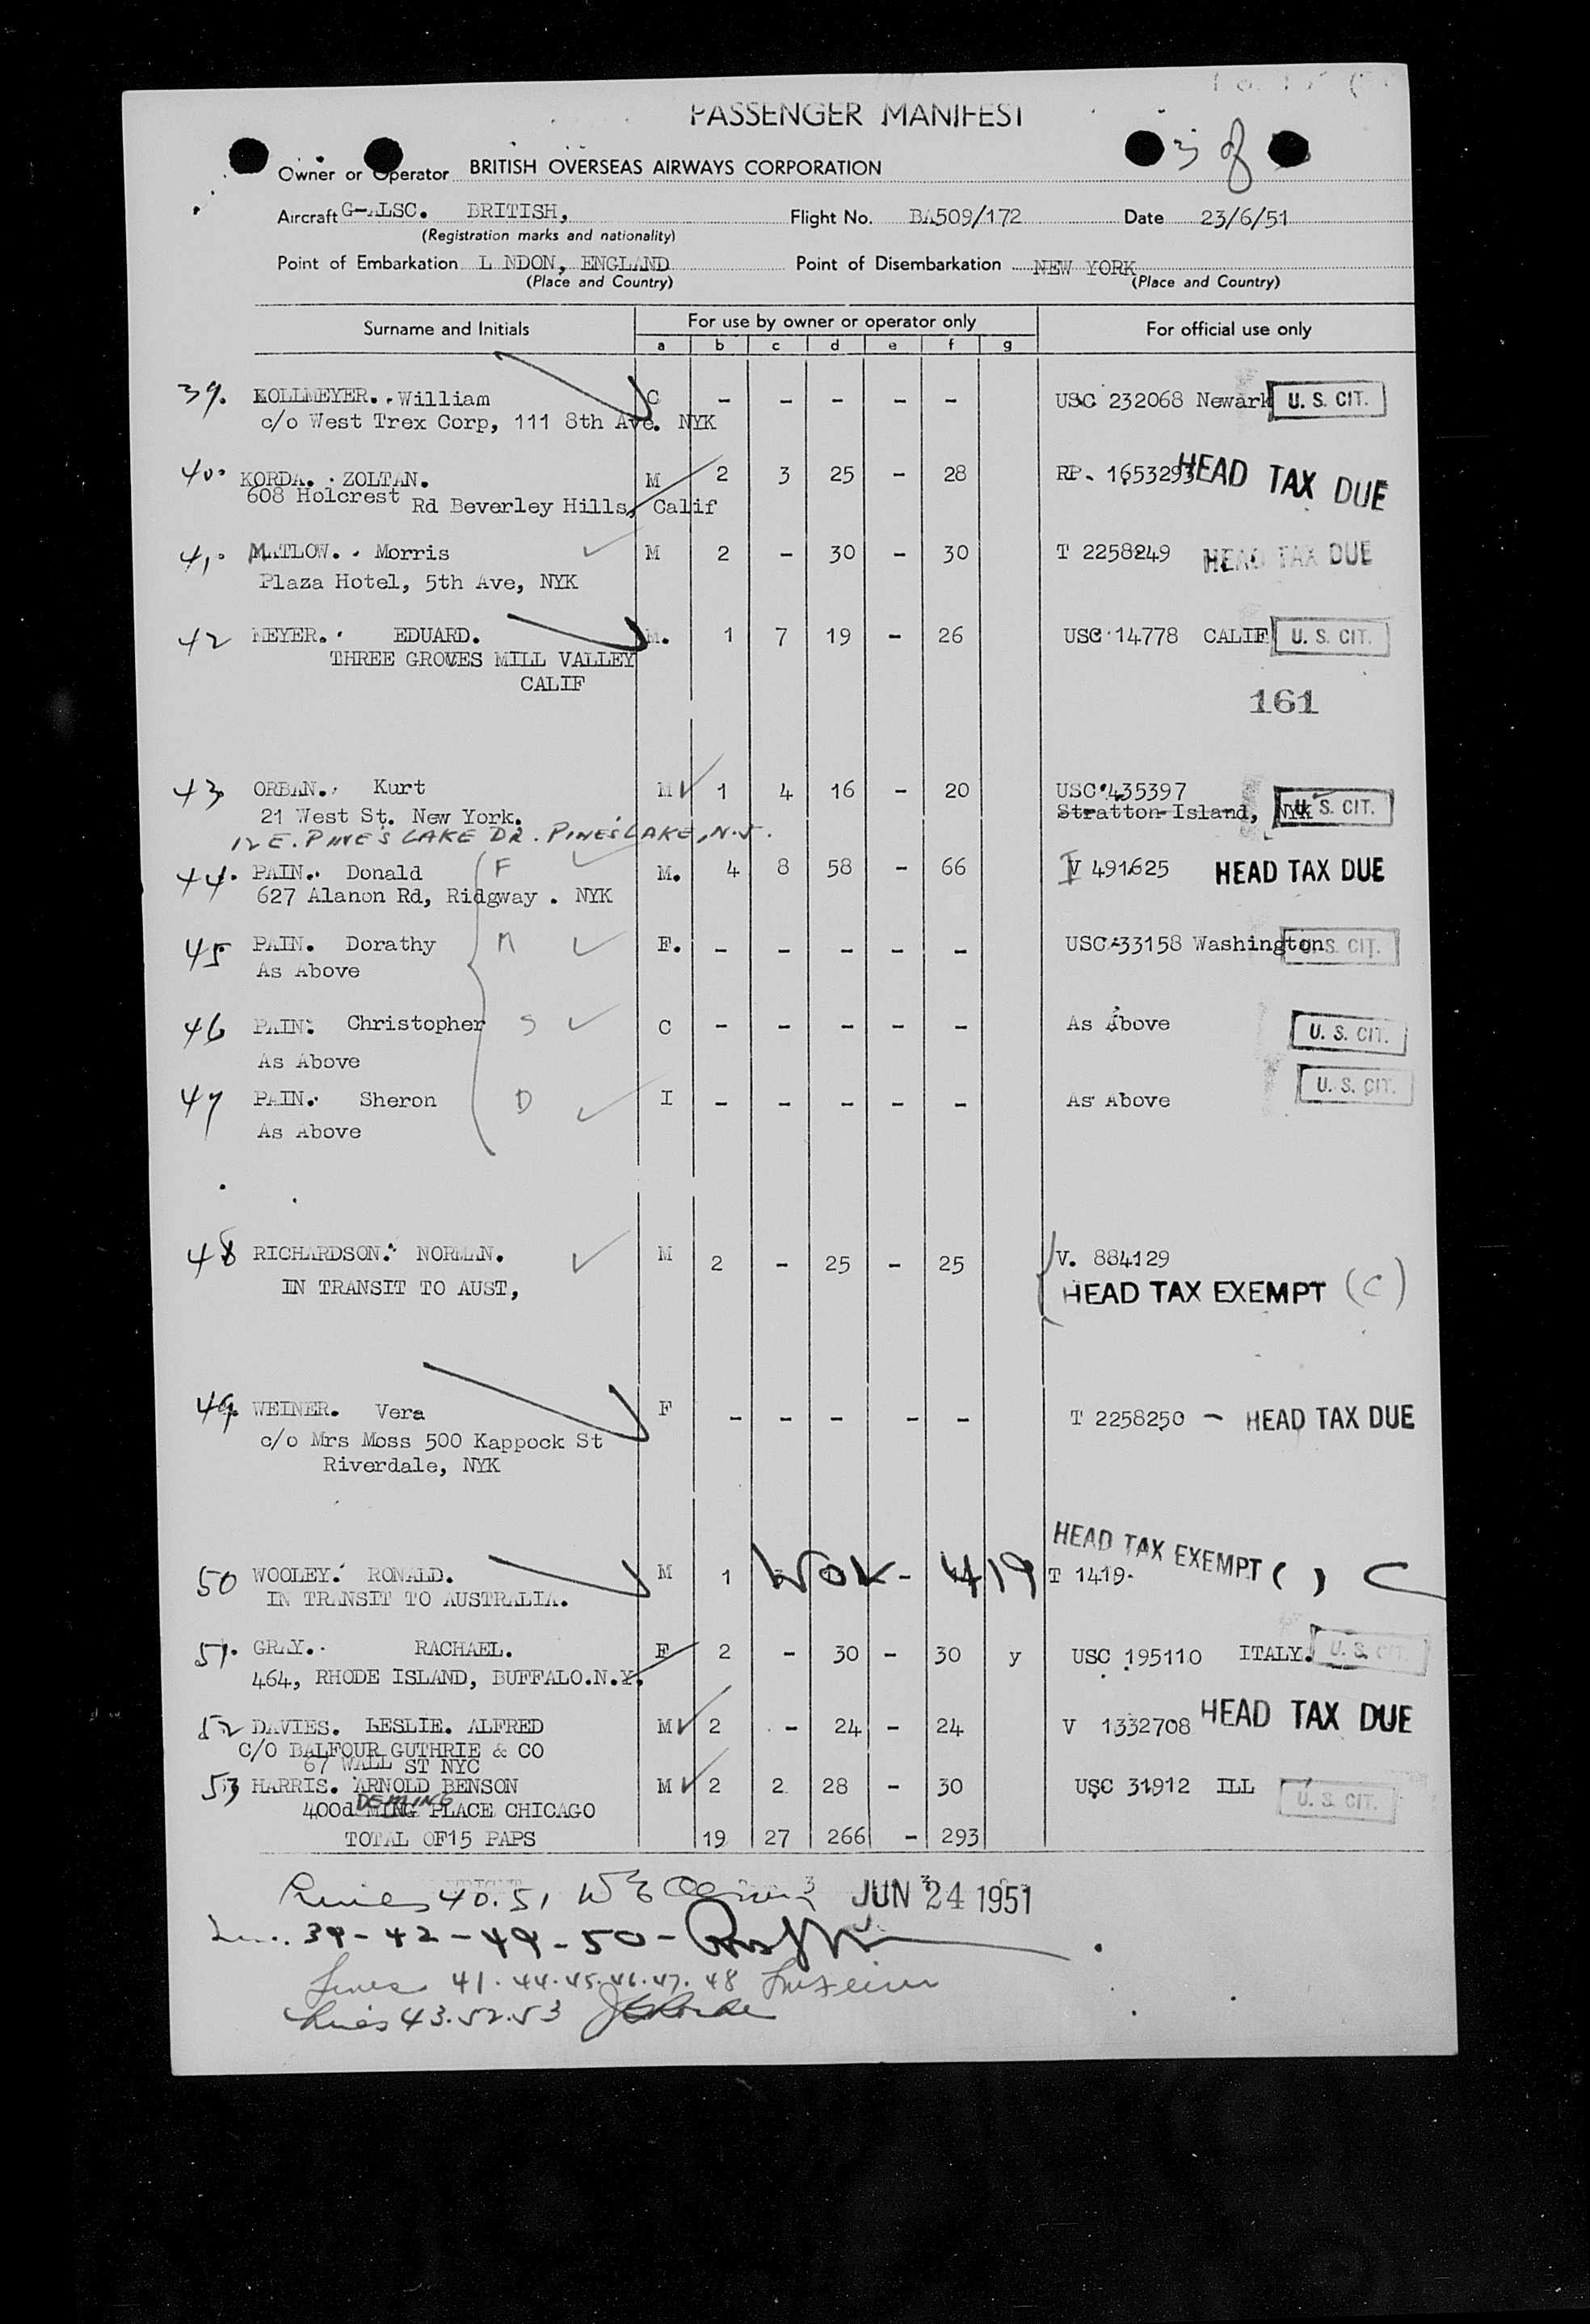 PASSENGER MANIFEST
3 of
Owner or Operator BRITISH OVERSEAS AIRWAYS CORPORATION
Aircraft G-ALSC. BRITISH, Flight No. BA509/172 Date 23/6/51
(Registration marks and nationality)
Point of Embarkation L NDON, ENGLAND Point of Disembarkation NEW YORK
(Place and Country) (Place and Country)
Surname and Initials For use by owner or operator only For official use only
a b c d e f g
39. KOLLMEYER. William C - - - - - USC 232068 Newark U. S. CIT.
c/o West Trex Corp, 111 8th Ave. NYK
40. KORDA. ZOLTAN. M 2 3 25 - 28 RP. 1653293 HEAD TAX DUE
608 Holcrest Rd Beverley Hills, Calif
41. MATLOW. Morris M 2 - 30 - 30 T 2258249 HEAD TAX DUE
Plaza Hotel, 5th Ave, NYK
42 MEYER. EDUARD. M. 1 7 19 - 26 USC 14778 CALIF U. S. CIT.
THREE GROVES MILL VALLEY
CALIF
161
43 ORBAN. Kurt M 1 4 16 - 20 USC 435397
21 West St. New York. Stratton Island, NYK U. S. CIT.
12 E. PINE'S LAKE DR. PINES LAKE, N.J.
44. PAIN. Donald F M. 4 8 58 - 66 V 491625 HEAD TAX DUE
627 Alanon Rd, Ridgway. NYK
45 PAIN. Dorathy M F. - - - - - USC 33158 Washington U. S. CIT.
As Above
46 PAIN. Christopher S C - - - - - As Above U. S. CIT.
As Above
47 PAIN. Sheron D I - - - - - As Above U. S. CIT.
As Above
48 RICHARDSON. NORMAN. M 2 - 25 - 25 V. 884129
IN TRANSIT TO AUST, HEAD TAX EXEMPT (C)
49. WEINER. Vera F - - - - - T 2258250 - HEAD TAX DUE
c/o Mrs Moss 500 Kappock St
Riverdale, NYK
HEAD TAX EXEMPT ( ) C
50 WOOLEY. RONALD. M 1 - 419 T 1419.
IN TRANSIT TO AUSTRALIA.
51. GRAY. RACHAEL. F 2 - 30 - 30 y USC 195110 ITALY. U. S. CIT.
464, RHODE ISLAND, BUFFALO.N.Y.
52 DAVIES. LESLIE. ALFRED M 2 - 24 - 24 V 1332708 HEAD TAX DUE
C/O BALFOUR GUTHRIE & CO
67 WALL ST NYC
53 HARRIS. ARNOLD BENSON M 2 2 28 - 30 USC 31912 ILL U. S. CIT.
DEMING
400d MING PLACE CHICAGO
TOTAL OF15 PAPS 19 27 266 - 293
Lines 40.51 JUN 24 1951
39-42-49-50-
Lines 41.44.45.46.47.48
Lines 43.52.53